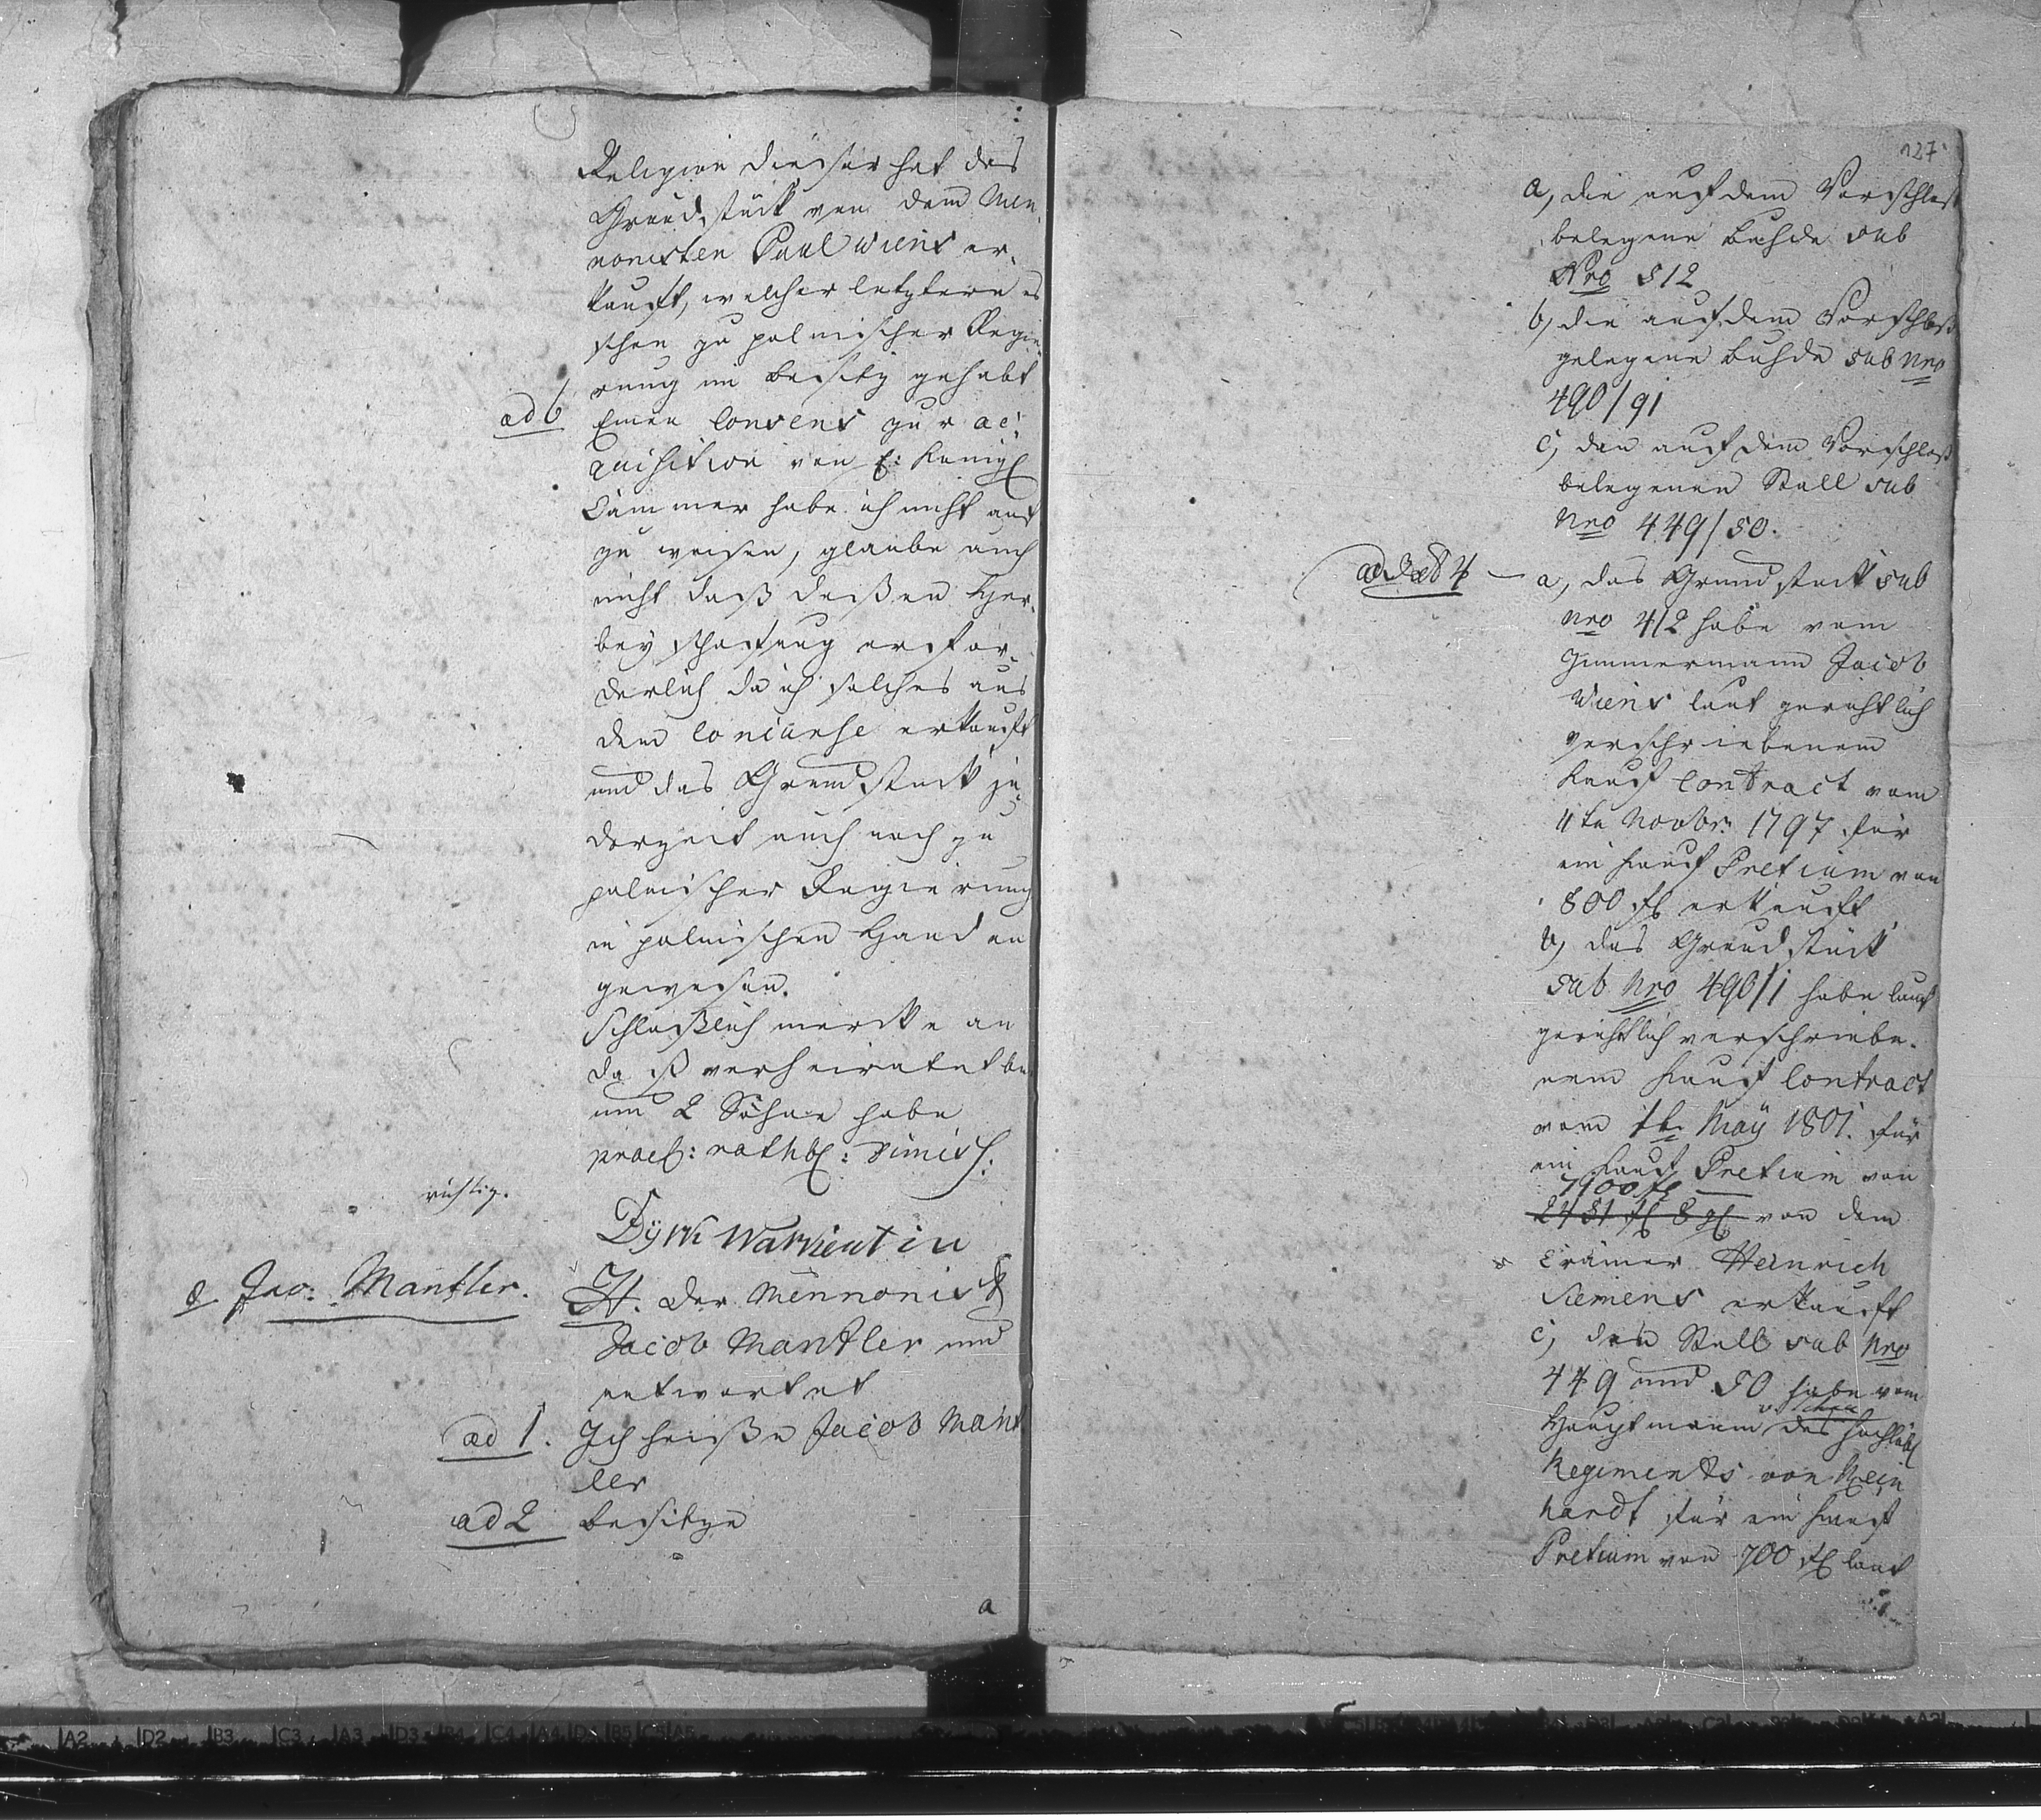 Religion dieser hat das
Grundstück von dem Men-
nonisten Paul Wiens er-
kauft, welcher letztere es
schon zu polnischer Regie-
rung im Besitz gehabt
ad 6 Einen Consens zur ac-
quisition von E: Königl
Cammer habe ich nicht auf
zu weisen, glaube auch
nicht daß deßen Her-
bey schaffung erfor-
derlich da ich solches aus
dem Concurse erkauft
und das Grundstück je-
derzeit auch noch zu
polnischer Regierung
in polnischen Händen
gewesen.
Schließlich mercke an
daß verheiratet bin
und 2 Söhne habe
prael: rathbl: dimiss:
richtig.
Dyrk Warkentin
8 Jac: Mantler.
H. der Mennonist
Jacob Mantler und
antwortet
ad 1. Ich heiße Jacob Mant
ler
ad 2 besitze
a
127
a, die auf dem Vorschloß
belegene Buhde sub
Nro 512
b, die auf dem Vorschloß
gelegene Buhde sub Nro
490/91
c, den auf dem Vorschloß
belegenen Stall sub
Nro 449/50.
ad 3 et 4 a, das Grundstück sub
Nro 412 habe vom
Zimmermann Jacob
Wiens laut gerichtlich
verschriebenem
Kauf Contract vom
4te Novbr: 1797 für
ein Kauf Pretium von
800 fl erkauft
b, das Grundstück
sub Nro 490/1 habe laut
gerichtlich verschriebe-
nem Kauf Contract
vom 1te May 1801. für
ein Kauf Pretium von
7900 fl
2451 fl 8 gl von dem
Crämer Heinrich
Siemens erkauft
c, den Stall sub Nro
449 und 50 habe vom
Hauptmann des hochlöbl
Regiments von Rein
hardt für ein Kauf
Pretium von 700 fl laut